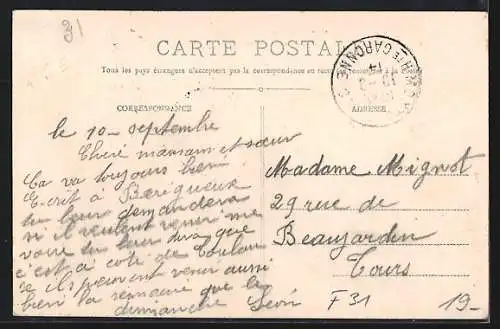 31
CARTE POSTALE
Tous les pays étrangers n'acceptent pas la correspondance au recto
CORRESPONDANCE
ADRESSE
HTE GARONNE
le 10 - septembre
Cheré maman et sœur
Ca va toujours bien
Ecrit à Perigueux
tu leur demandera
si il veulent venir me
voire tu leur dira que
c'est a coté de Toulou
se ils peuvent venir aussi
bien la semaine que le
dimanche Léon
Madame Mignot
29 rue de
Beaujardin
Tours
F31
19-